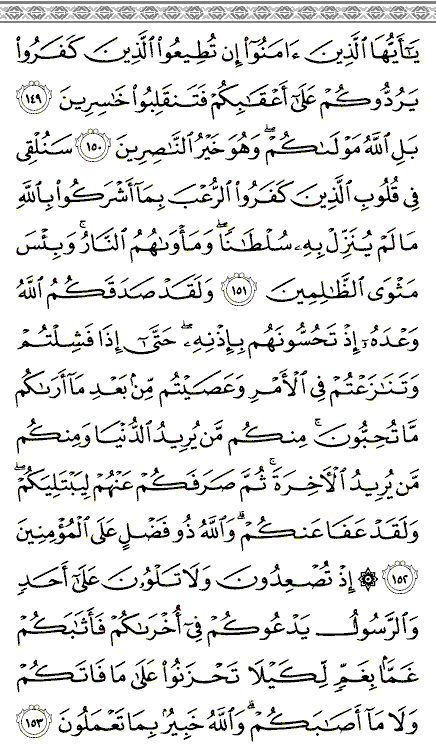 يَٰٓأَيُّهَا ٱلَّذِينَ ءَامَنُوٓا۟ إِن تُطِيعُوا۟ ٱلَّذِينَ كَفَرُوا۟
يَرُدُّوكُمْ عَلَىٰٓ أَعْقَٰبِكُمْ فَتَنقَلِبُوا۟ خَٰسِرِينَ ١٤٩
بَلِ ٱللَّهُ مَوْلَىٰكُمْ ۖ وَهُوَ خَيْرُ ٱلنَّٰصِرِينَ ١٥٠ سَنُلْقِى
فِى قُلُوبِ ٱلَّذِينَ كَفَرُوا۟ ٱلرُّعْبَ بِمَآ أَشْرَكُوا۟ بِٱللَّهِ
مَا لَمْ يُنَزِّلْ بِهِۦ سُلْطَٰنًا ۖ وَمَأْوَىٰهُمُ ٱلنَّارُ ۚ وَبِئْسَ
مَثْوَى ٱلظَّٰلِمِينَ ١٥١ وَلَقَدْ صَدَقَكُمُ ٱللَّهُ
وَعْدَهُۥٓ إِذْ تَحُسُّونَهُم بِإِذْنِهِۦ ۖ حَتَّىٰٓ إِذَا فَشِلْتُمْ
وَتَنَٰزَعْتُمْ فِى ٱلْأَمْرِ وَعَصَيْتُم مِّنۢ بَعْدِ مَآ أَرَىٰكُم
مَّا تُحِبُّونَ ۚ مِنكُم مَّن يُرِيدُ ٱلدُّنْيَا وَمِنكُم
مَّن يُرِيدُ ٱلْأَخِرَةَ ۚ ثُمَّ صَرَفَكُمْ عَنْهُمْ لِيَبْتَلِيَكُمْ ۖ
وَلَقَدْ عَفَا عَنكُمْ ۗ وَٱللَّهُ ذُو فَضْلٍ عَلَى ٱلْمُؤْمِنِينَ
١٥٢ ۞ إِذْ تُصْعِدُونَ وَلَا تَلْوُۥنَ عَلَىٰٓ أَحَدٍ
وَٱلرَّسُولُ يَدْعُوكُمْ فِىٓ أُخْرَىٰكُمْ فَأَثَٰبَكُمْ
غَمًّۢا بِغَمٍّ لِّكَيْلَا تَحْزَنُوا۟ عَلَىٰ مَا فَاتَكُمْ
وَلَا مَآ أَصَٰبَكُمْ ۗ وَٱللَّهُ خَبِيرٌۢ بِمَا تَعْمَلُونَ ١٥٣